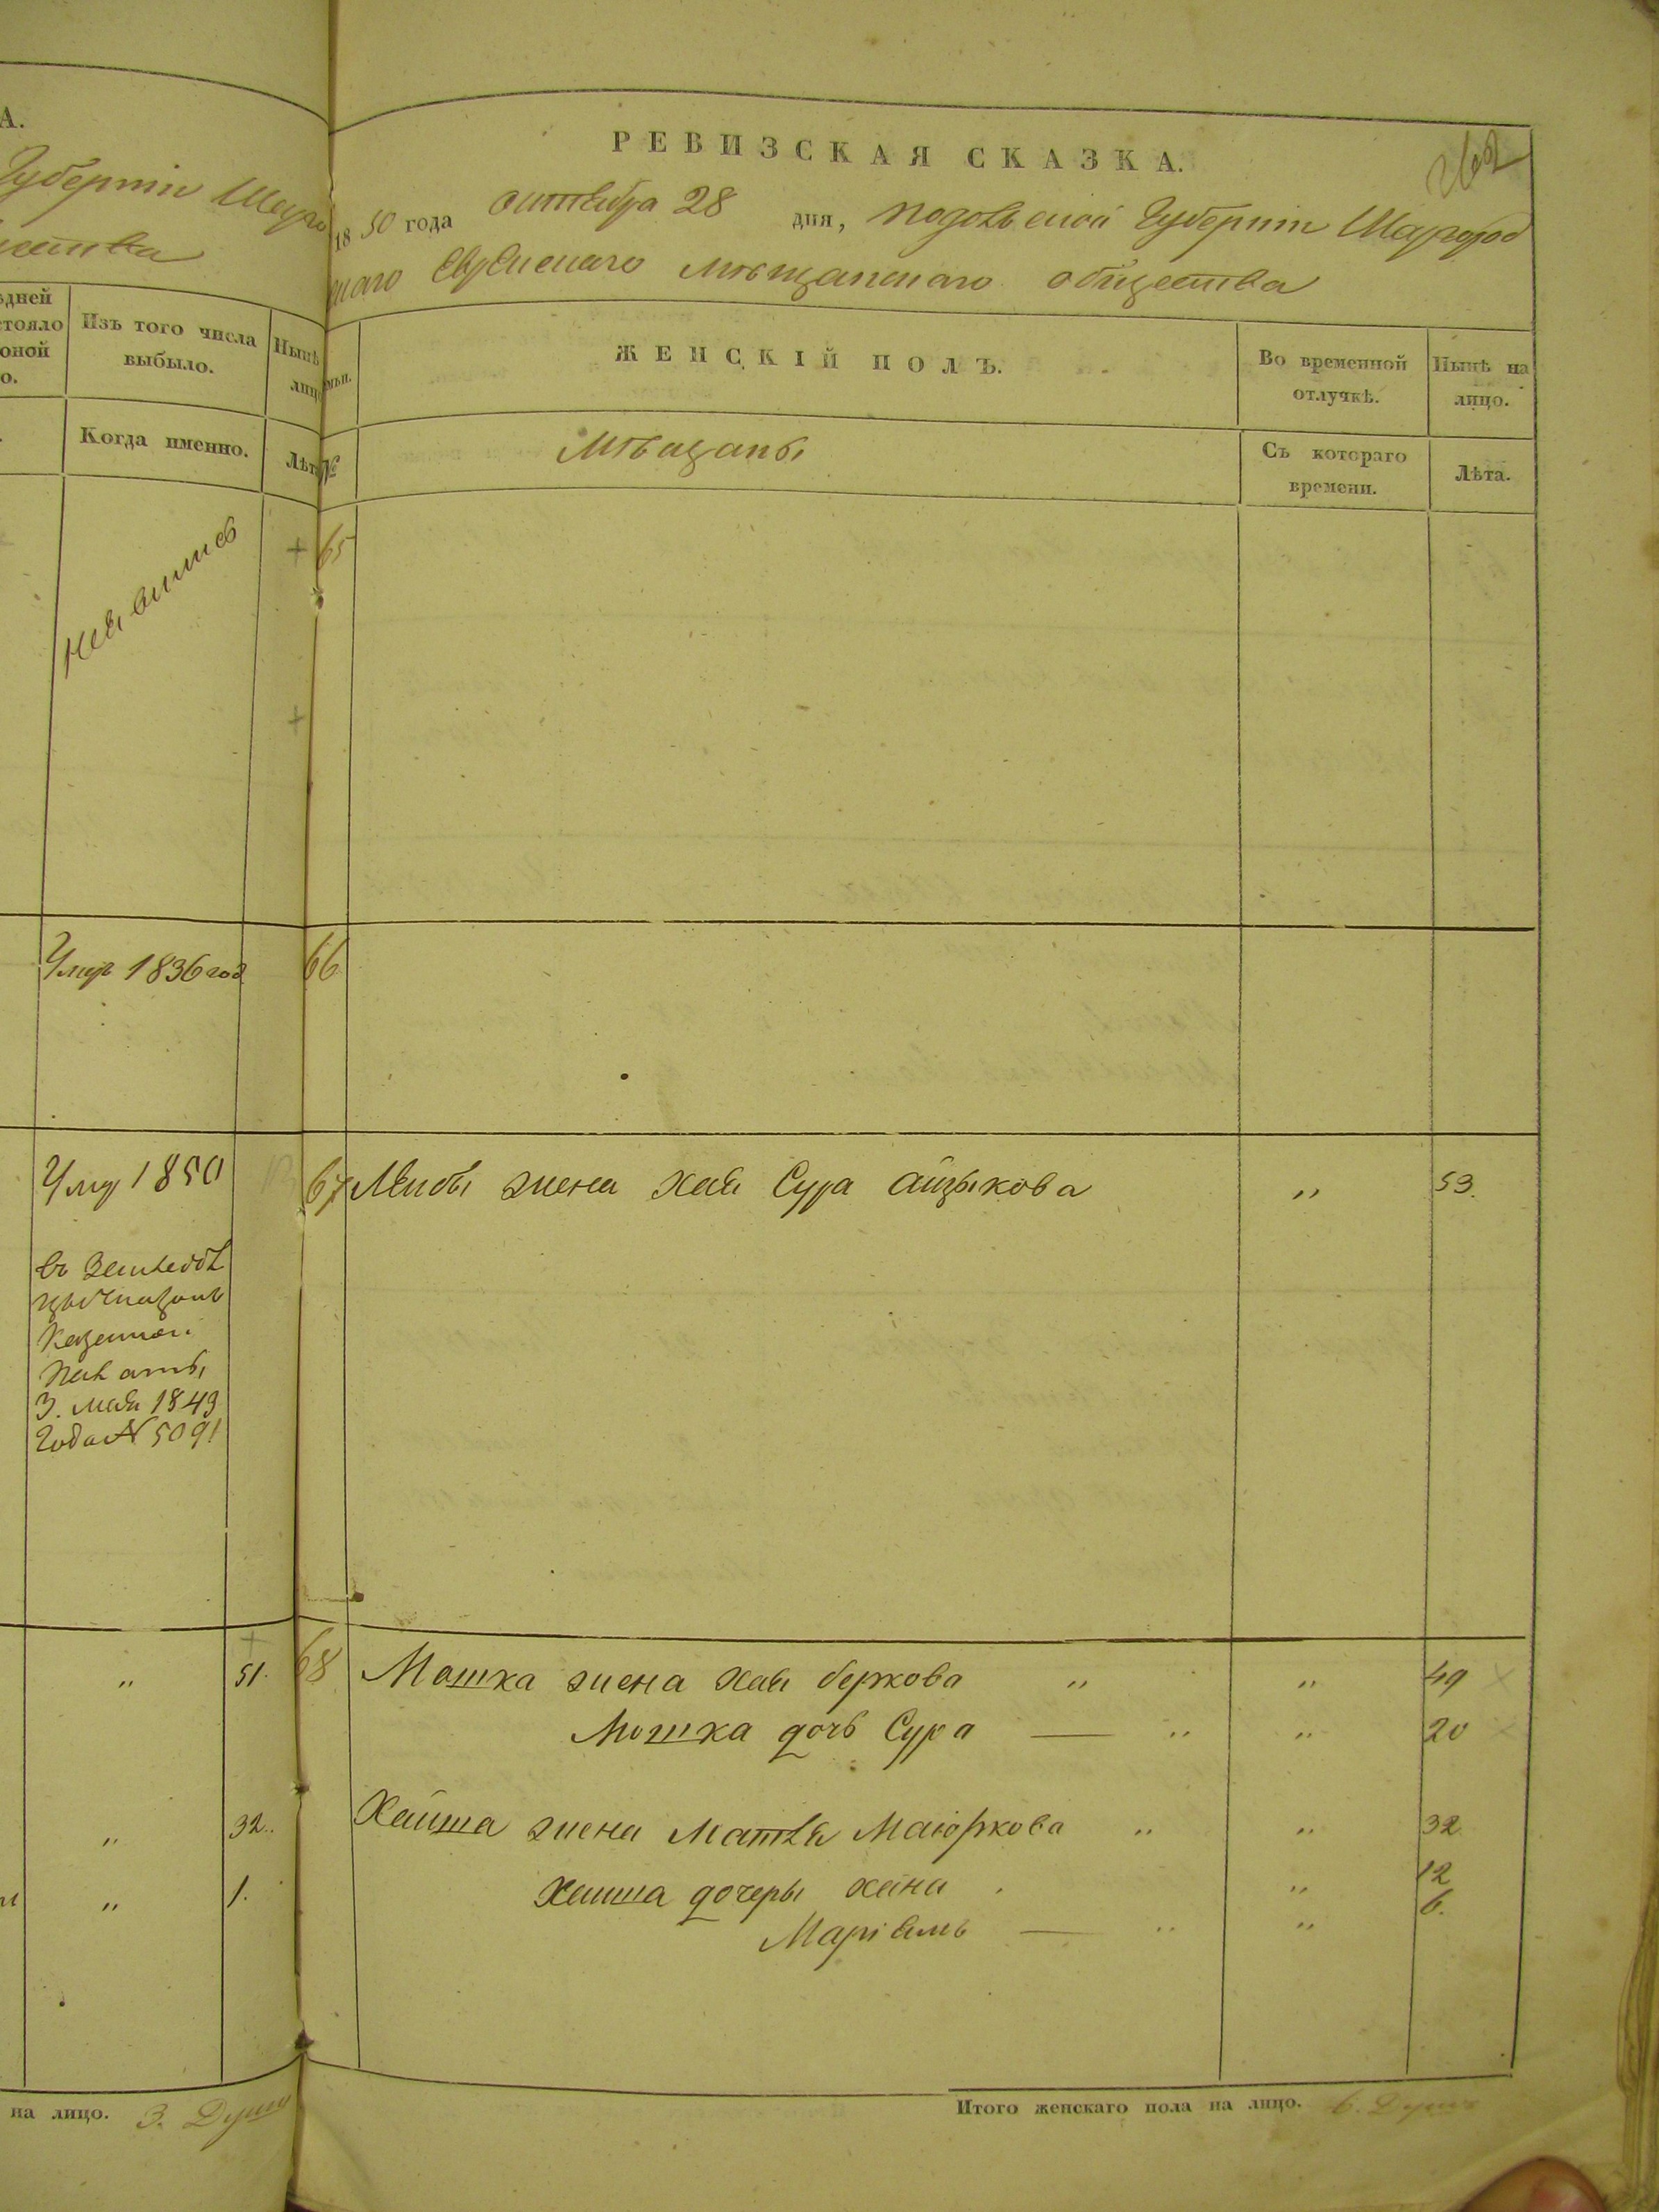 А.
Губерніи Шарго
ества
ѣдней
стояло
оной
о.
Изъ того числа
выбыло.
Нынѣ
лицо
Когда именно.
Лѣта
неявился
Умръ 1836 год
Умр 1850
въ
Казенной
Палаты
3. мая 1843
Года № 5091
„ 51.
„ 32.
„ 1.
на лицо. 3. Души
262
РЕВИЗСКАЯ СКАЗКА.
1850 года октября 28 дня, Подольской Губерніи Шаргород
скаго Еврейскаго мѣщанскаго общества
мьи.
ЖЕНСКІЙ ПОЛЪ.
Во временной
отлучкѣ.
Нынѣ на
лицо.
№
Мѣщаны
Съ котораго
времени.
Лѣта.
65
66
67 Лейбы жена Хая Сура Айзыкова „ 53.
68 Мошка жена Хая Беркова „ „ 49
Мошка дочь Сура — „ „ 20
Хаима жена Матля Маіоркова „ „ 32
Хаима дочеры Хана „ 12
Маріямъ — „ „ 6.
Итого женскаго пола на лицо. 6. Душъ